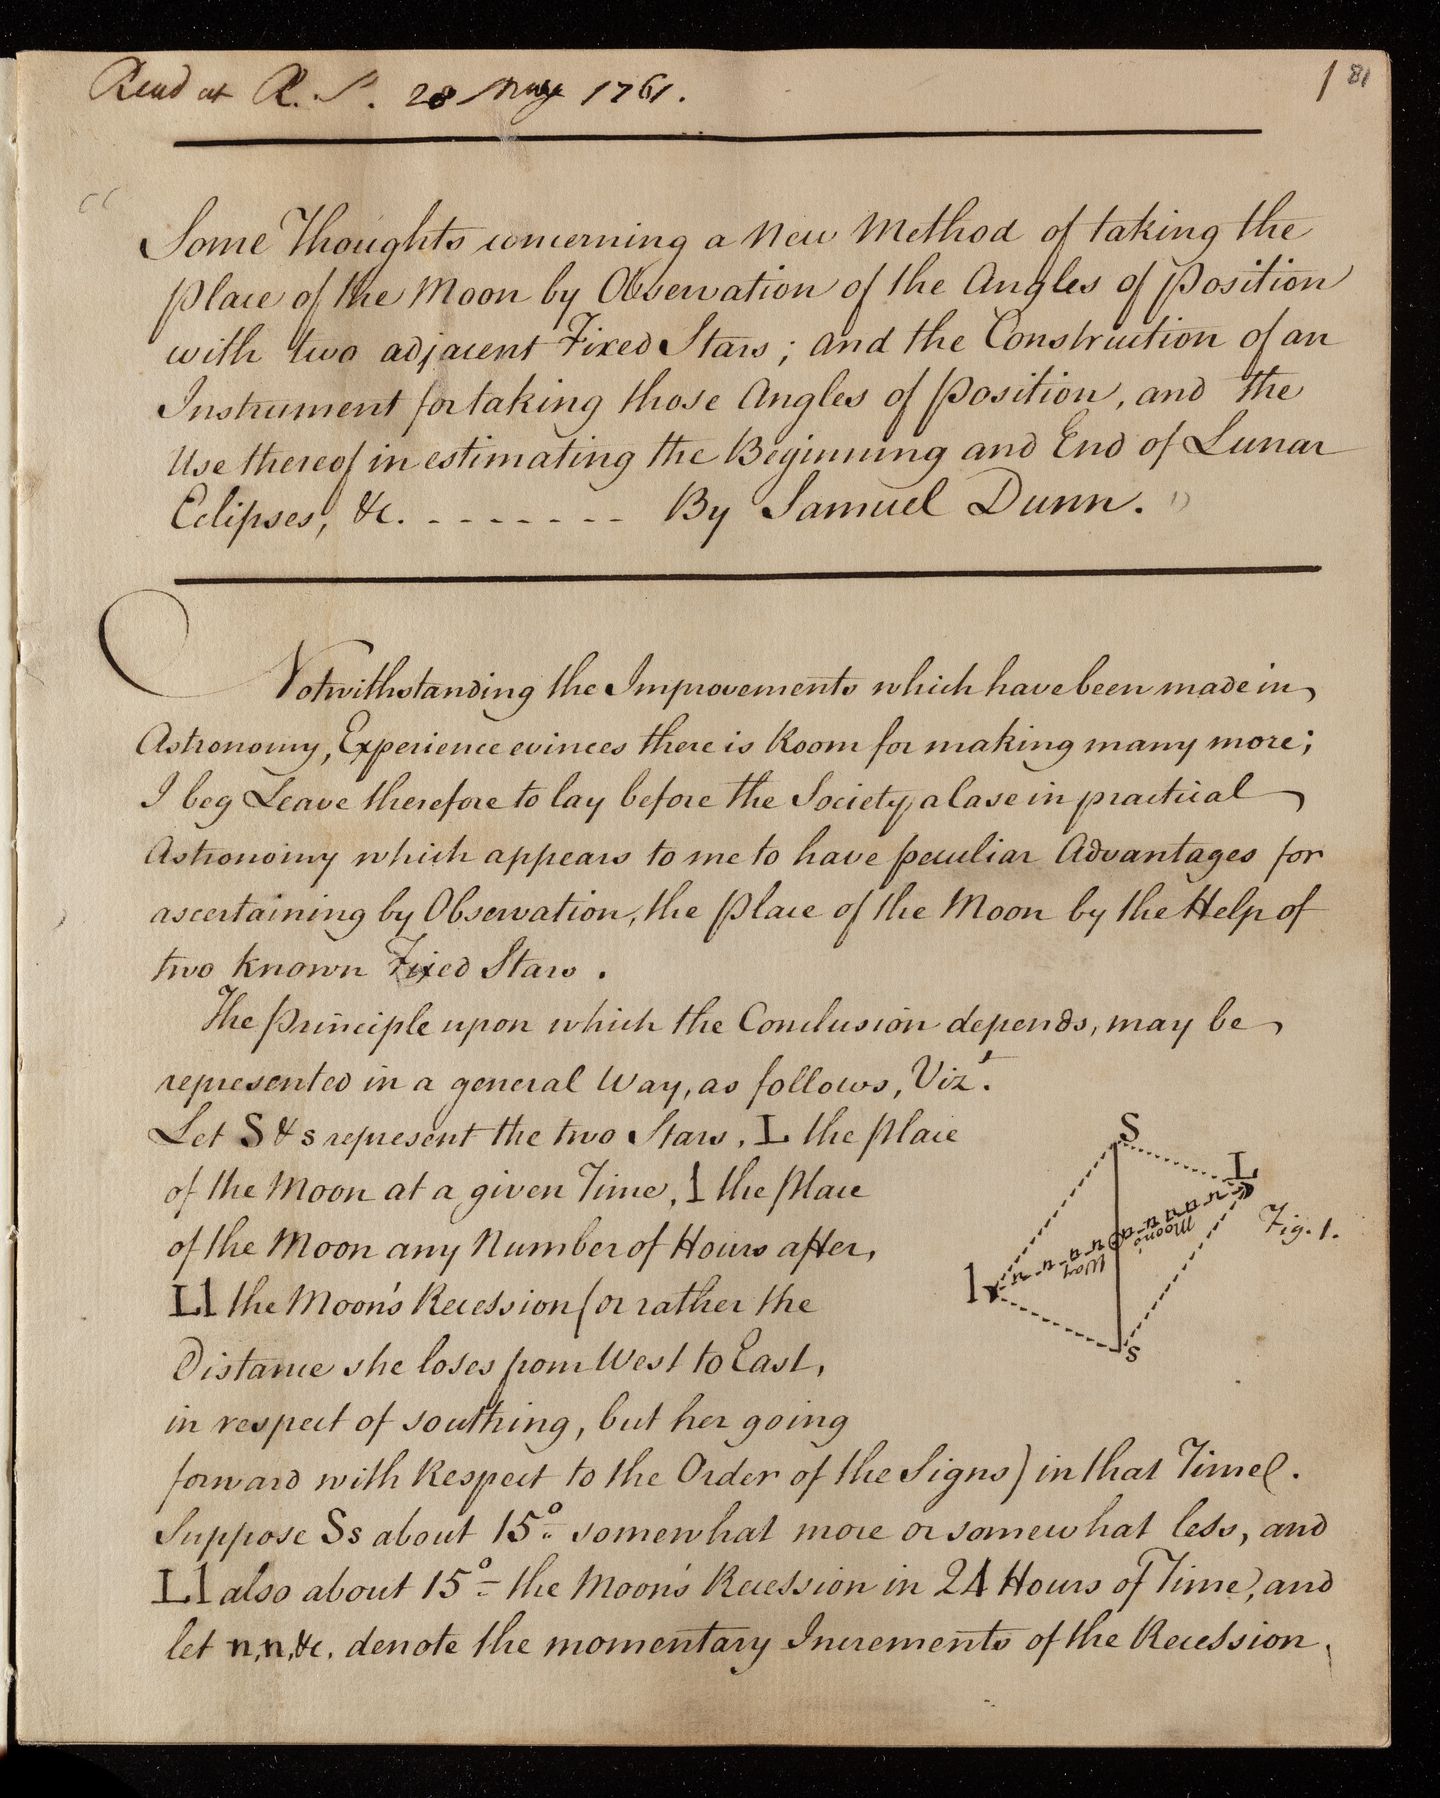 Read at R. S. 28 May 1761.
1 81
Some Thoughts concerning a New Method of taking the
Place of the Moon by Observation of the Angles of Position
with two adjacent Fixed Stars; and the Construction of an
Instrument for taking those Angles of Position, and the
Use thereof in estimating the Beginning and End of Lunar
Eclipses, &c. - - - - - - - - By Samuel Dunn.
Notwithstanding the Improvements which have been made in
Astronomy, Experience evinces there is Room for making many more;
I beg Leave therefore to lay before the Society, a Case in practical
Astronomy which appears to me to have peculiar Advantages for
ascertaining by Observation, the Place of the Moon by the Help of
two known Fixed Stars.
The Principle upon which the Conclusion depends, may be
represented in a general Way, as follows, Vizt.
Let S & s represent the two Stars, L the Place
of the Moon at a given Time, l the Place
of the Moon any Number of Hours after,
Ll the Moon's Recession (or rather the
Distance she loses from West to East,
in respect of southing, but her going
forward with Respect to the Order of the Signs) in that Time.
Suppose Ss about 15° somewhat more or somewhat less, and
Ll also about 15° the Moon's Recession in 24 Hours of Time, and
let n,n,&c. denote the momentary Increments of the Recession
S
L
n n n n n n n n n
Moon's Way
Fig. 1.
l
s